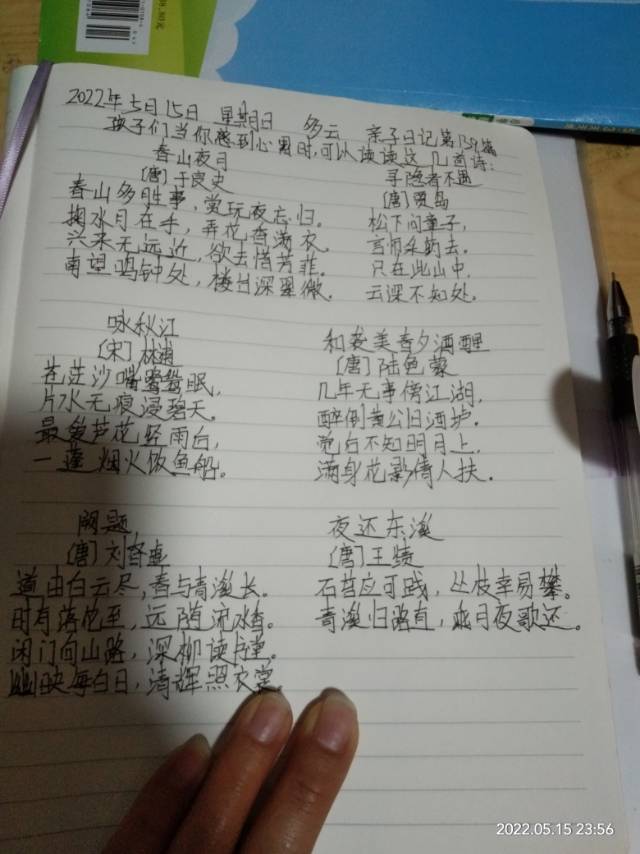 2022年5月15日 星期日 多云 亲子日记第139篇
孩子们当你感到心累时,可以读读这几首诗:
春山夜月
〔唐〕于良史
春山多胜事,赏玩夜忘归。
掬水月在手,弄花香满衣。
兴来无远近,欲去惜芳菲。
南望鸣钟处,楼台深翠微。
寻隐者不遇
〔唐〕贾岛
松下问童子,
言师采药去。
只在此山中,
云深不知处。
咏秋江
〔宋〕林逋
苍茫沙嘴鹭鸶眠,
片水无痕浸碧天。
最爱芦花经雨后,
一蓬烟火饭鱼船。
和袭美春夕酒醒
〔唐〕陆龟蒙
几年无事傍江湖,
醉倒黄公旧酒垆。
觉后不知明月上,
满身花影倩人扶。
阙题
〔唐〕刘眘虚
道由白云尽,春与青溪长。
时有落花至,远随流水香。
闲门向山路,深柳读书堂。
幽映每白日,清辉照衣裳。
夜还东溪
〔唐〕王绩
石苔应可践,丛枝幸易攀。
青溪归路直,乘月夜歌还。
2022.05.15 23:56